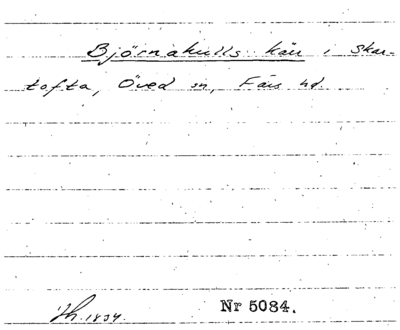 Björnakulls kär i Skar-
tofta, Öved sn, Färs hd.
1834. Nr 5084.